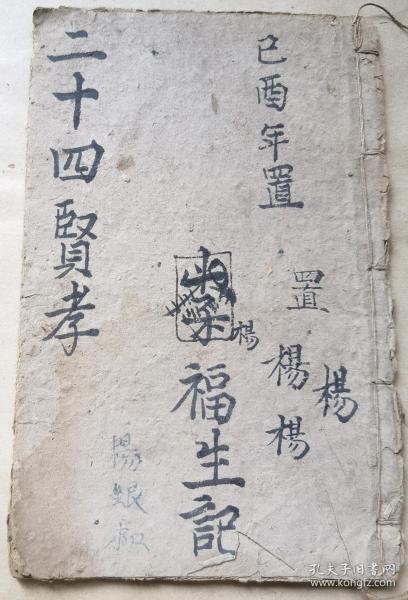 己酉年置
置
楊
楊
楊
楊
福生記
楊銀
二十四賢孝
孔夫子旧书网
www.kongfz.com